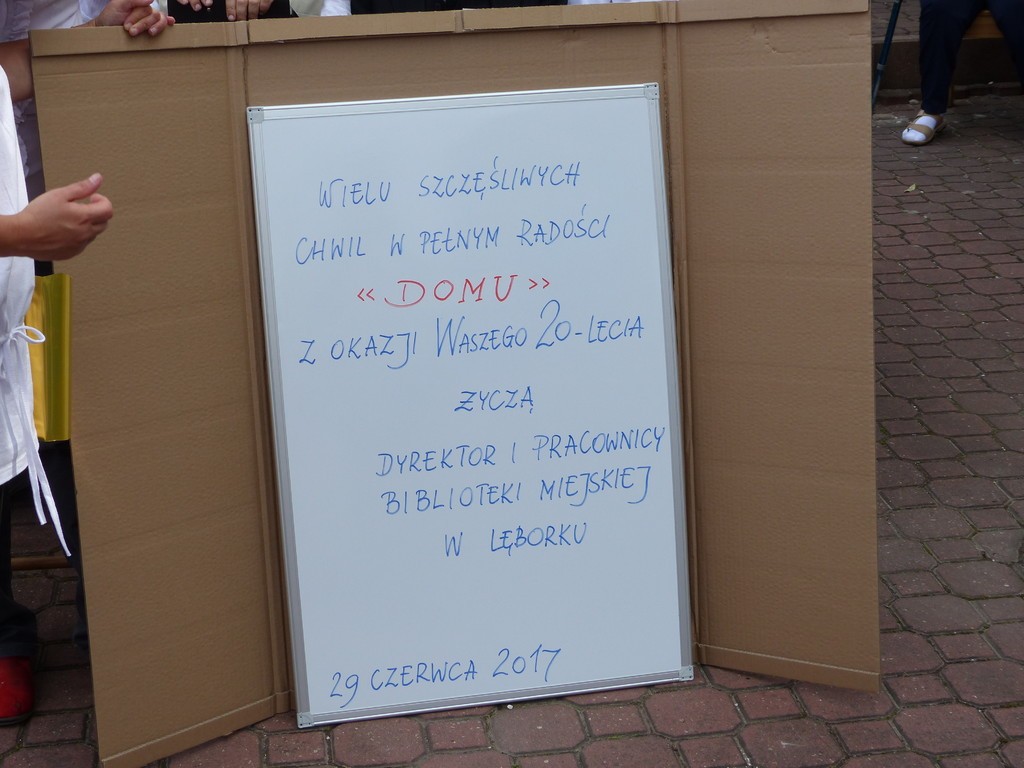 WIELU SZCZĘŚLIWYCH
CHWIL W PEŁNYM RADOŚCI
« DOMU »
Z OKAZJI WASZEGO 20-LECIA
ŻYCZĄ
DYREKTOR I PRACOWNICY
BIBLIOTEKI MIEJSKIEJ
W LĘBORKU
29 CZERWCA 2017